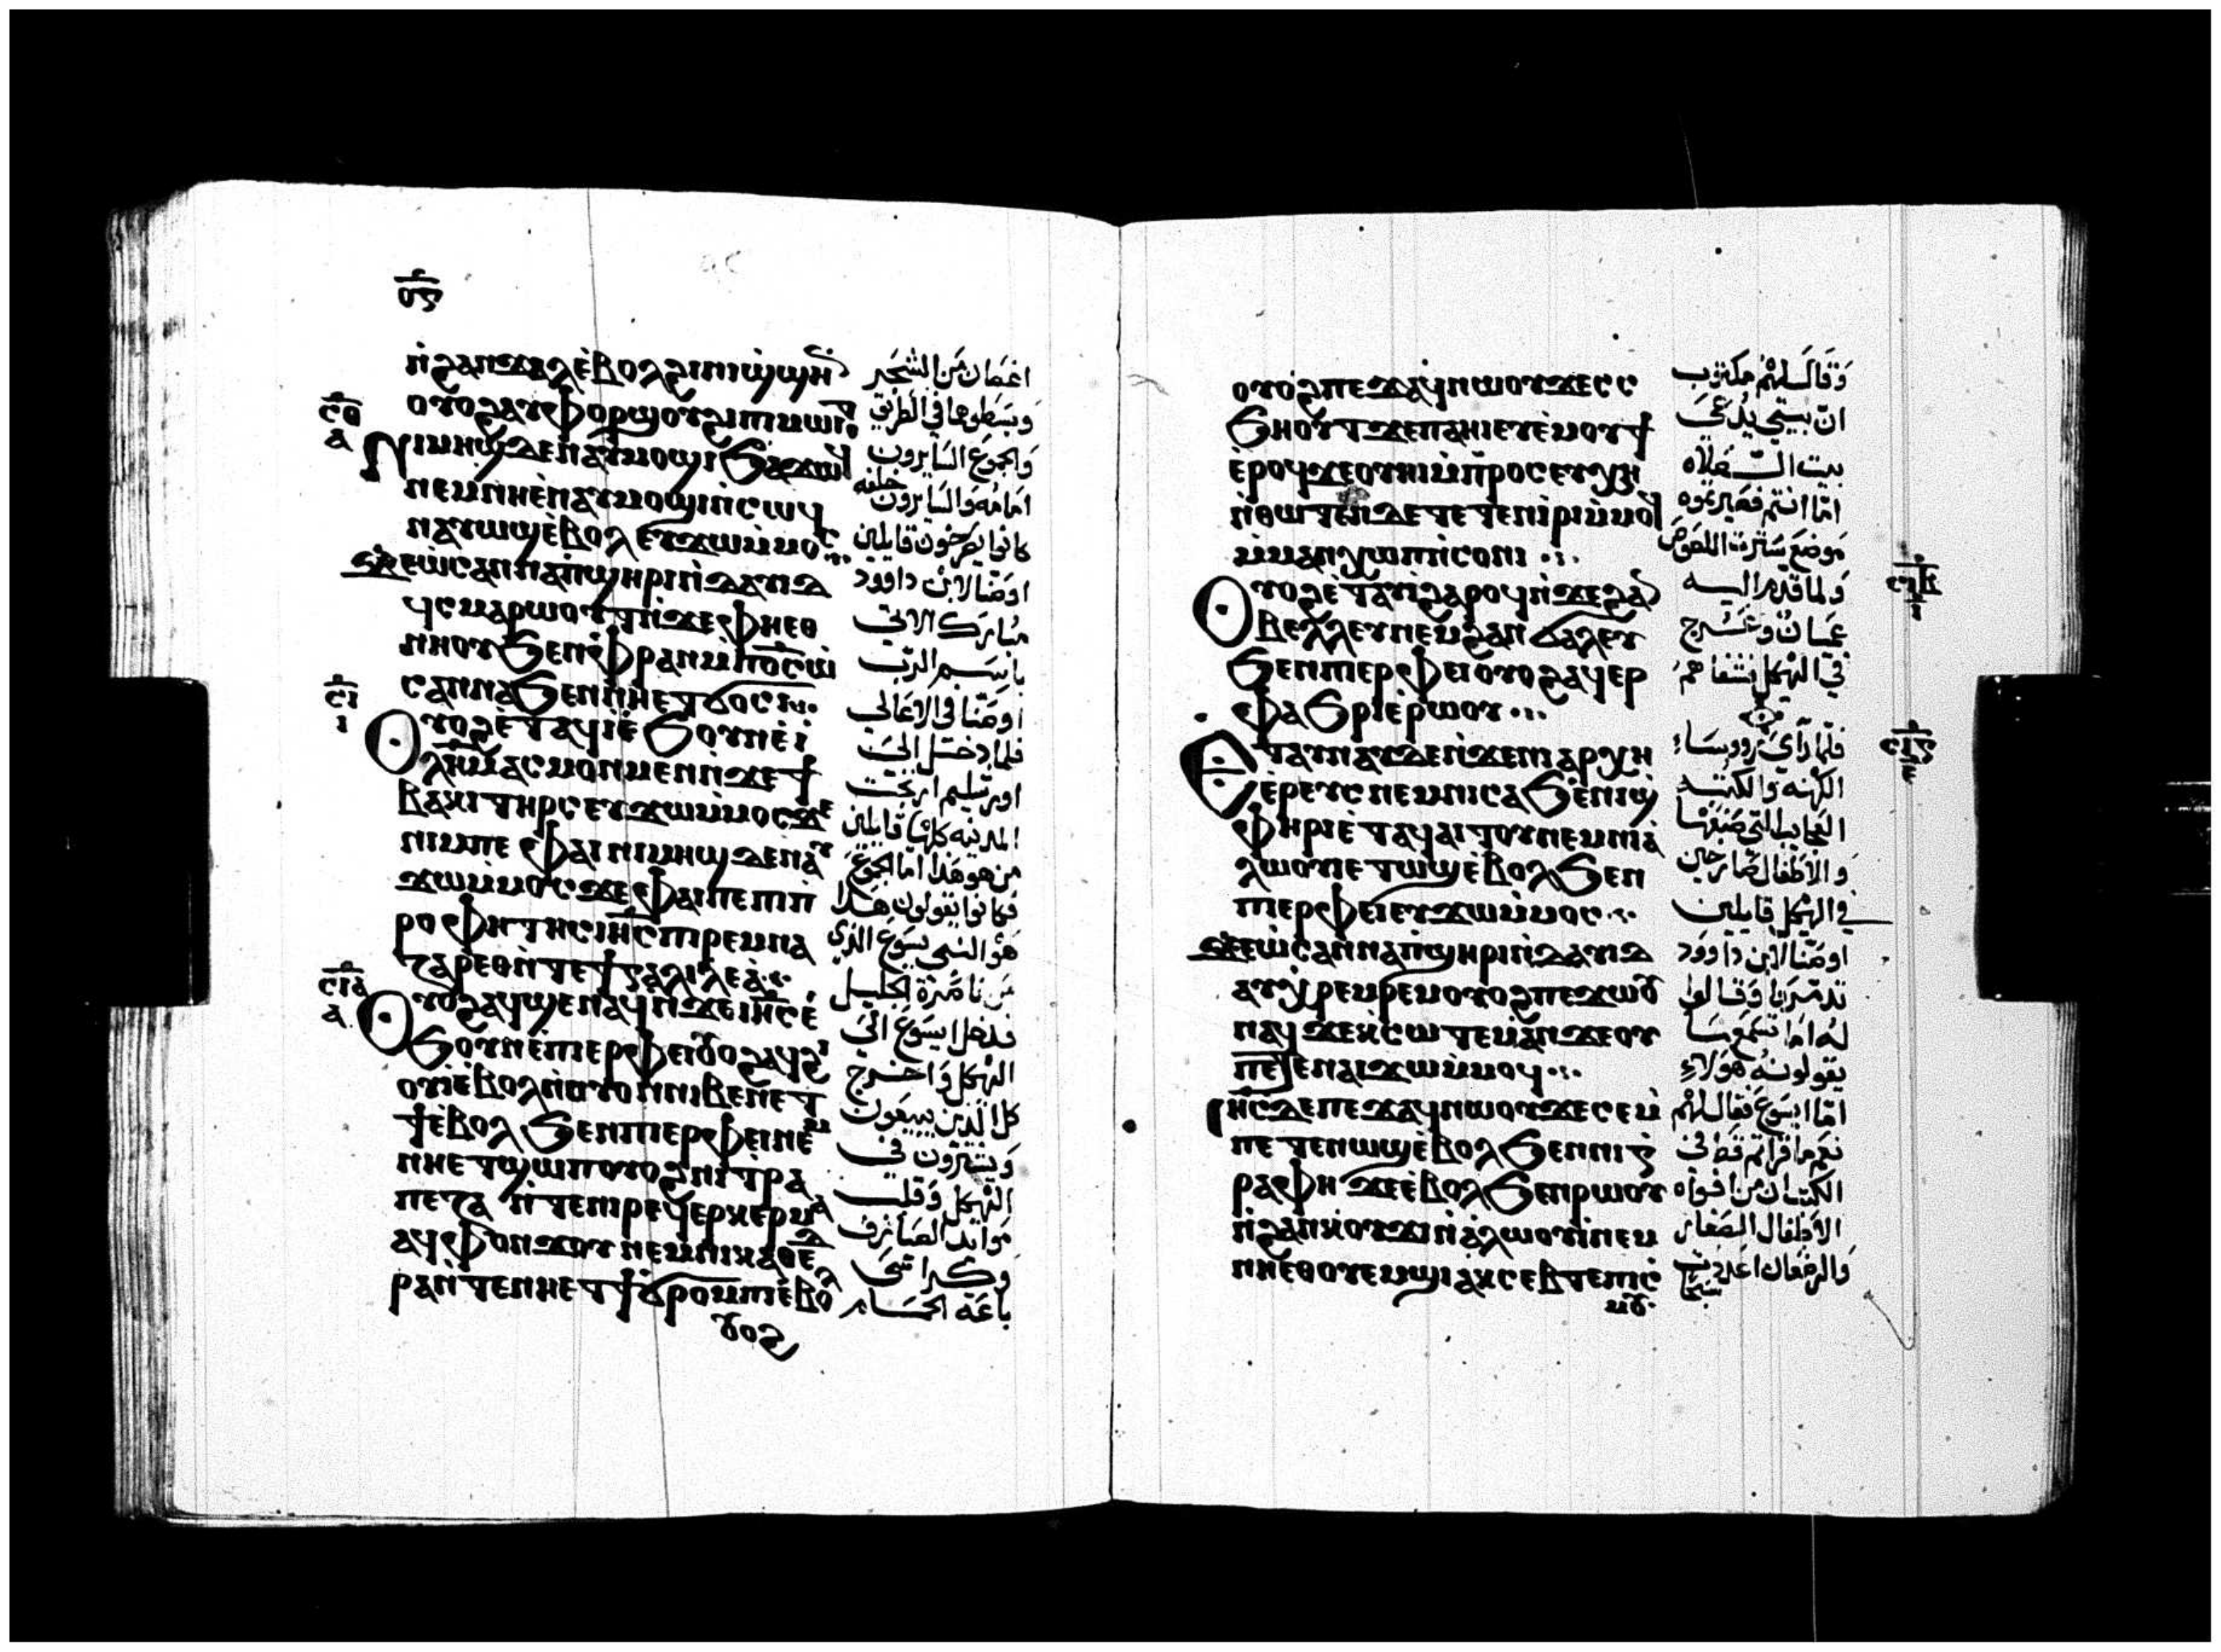 ⲟⲋ
ⲛ̀ϩⲁⲛϫⲁⲗⲉ̀ⲃⲟⲗϩⲓⲛⲓϣ̀ϣⲏⲛ
ⲟⲩⲟϩⲁⲩⲫⲟⲣϣⲟⲩϩⲓⲡⲓⲙⲱⲓⲧ
ⲛⲓⲙⲏϣⲇⲉⲛⲁⲩⲙⲟϣⲓϧⲁϫⲱϥ
ⲛⲉⲙⲛⲏⲉ̀ⲛⲁⲩⲙⲟϣⲓⲛ̀ⲥⲱϥ
ⲛⲁⲩⲱϣⲉ̀ⲃⲟⲗⲉⲩϫⲱⲙ̀ⲙⲟⲥ
ϫⲉⲱ̀ⲥⲁⲛⲛⲁⲡ̀ϣⲏⲣⲓⲛ̀ⲇⲁⲩⲓⲇ
ϥⲥⲙⲁⲣⲱⲟⲩⲧⲛ̀ϫⲉⲫⲏⲉⲑ
ⲛⲏⲟⲩϧⲉⲛⲫ̀ⲣⲁⲛⲙ̀ⲡⲟ̅ⲥ̅ⲱ̀
ⲥⲁⲛⲛⲁϧⲉⲛⲛⲏⲉⲧϭⲟⲥⲓ
ⲟⲩⲟϩⲉ̀ⲧⲁϥⲓⲉ̀ϧⲟⲩⲛⲉ̀ⲓ̀
ⲗ̅ⲏ̅ⲙ̅ⲁⲥⲙⲟⲛⲙⲉⲛⲛ̀ϫⲉϯ
ⲃⲁⲕⲓⲧⲏⲣⲥⲉⲩϫⲱⲙ̀ⲙⲟⲥϫⲉ
ⲛⲓⲙⲡⲉⲫⲁⲓⲛⲓⲙⲏϣⲇⲉⲛⲁⲩ
ϫⲱⲙ̀ⲙⲟⲥϫⲉⲫⲁⲓⲡⲉⲡⲓⲡ̀
ⲣⲟⲫⲏⲧⲏⲥⲓⲏ̅ⲥ̅ⲡⲓⲣⲉⲙⲛⲁ
ⲍⲁⲣⲉⲑⲛ̀ⲧⲉϯⲅⲁⲗⲓⲗⲉⲁ̀
ⲟⲩⲟϩⲁϥϣⲉⲛⲁϥⲛ̀ϫⲉⲓⲏ̅ⲥ̅ⲉ̀
ϧⲟⲩⲛⲉ̀ⲡⲓⲉⲣⲫⲉⲓⲟⲩⲟϩⲁϥϩⲓ
ⲟⲩⲓ̀ⲉ̀ⲃⲟⲗⲛ̀ⲟⲩⲟⲛⲛⲓⲃⲉⲛⲉⲧ
ϯⲉ̀ⲃⲟⲗϧⲉⲛⲡⲓⲉⲣⲫⲉⲓⲛⲉⲙ
ⲛⲏⲉⲧϣⲱⲡⲟⲩⲟϩⲛⲓⲧⲣⲁ
ⲡⲉⲍⲁⲛ̀ⲧⲉⲛⲓⲣⲉϥⲉⲣⲕⲉⲣⲙⲁ
ⲁϥⲫⲟⲛϫⲟⲩⲛⲉⲙⲛⲓⲕⲁⲑⲉⲇ
ⲣⲁⲛ̀ⲧⲉⲛⲏⲉⲧϯϭⲣⲟⲙⲡⲓⲉ̀ⲃⲟⲗ
ⲟⲩⲟϩ
ⲥⲑ
ⲁ
ⲥⲓ
ⲓ
ⲥⲓⲁ
ⲁ
اغصان من الشجر
وبسطوها في الطريق
والجموع السايرون
امامه والسايرون خلفه
كانوا يصرخون قايلين
اوصنا لابن داوود
مبارك الاتي
باسم الرب
اوصنا في الاعالي
فلما دخل الى
اورشليم ارتجت
المدينه كلها قايلين
من هو هذا اما الجموع
فكانوا يقولون هذا
هو النبي يسوع الذي
من ناصرة الجليل
فدخل ايسوع الى
الهيكل واخرج
كل الذين يبيعون
ويشترون في
الهيكل وقلب
موايد الصيارف
وكراسي
باعة الحمام
ⲟⲩⲟϩⲡⲉϫⲁϥⲛⲱⲟⲩϫⲉⲥⲥ
ϧⲏⲟⲩⲧϫⲉⲡⲁⲏⲓⲉⲩⲉ̀ⲙⲟⲩϯ
ⲉ̀ⲣⲟϥϫⲉⲟⲩⲏⲓⲙ̀ⲡⲣⲟⲥⲉⲩⲭⲏ
ⲛ̀ⲑⲱⲧⲉⲛⲇⲉⲧⲉⲧⲉⲛⲓⲣⲓⲙ̀ⲙⲟϥ
ⲙ̀ⲙⲁⲛⲭⲱⲡⲛ̀ⲥⲟⲛⲓ
ⲟⲩⲟϩⲉ̀ⲧⲁⲩⲓ̀ϩⲁⲣⲟϥⲛ̀ϫⲉϩⲁⲛ
ⲃⲉⲗⲗⲉⲩⲛⲉⲙϩⲁⲛϭⲁⲗⲉⲩ
ϧⲉⲛⲡⲓⲉⲣⲫⲉⲓⲟⲩⲟϩⲁϥⲉⲣ
ⲫⲁϧⲣⲓⲉ̀ⲣⲱⲟⲩ
ⲉⲧⲁⲩⲛⲁⲩⲇⲉⲛ̀ϫⲉⲛⲓⲁⲣⲭⲏ
ⲉ̀ⲣⲉⲩⲥⲛⲉⲙⲛⲓⲥⲁϧⲉ̀ⲛⲓϣ̀
ⲫⲏⲣⲓⲉ̀ⲧⲁϥⲁⲓⲧⲟⲩⲛⲉⲙⲛⲓⲁ̀
ⲗⲱⲟⲩⲓⲉⲧⲱϣⲉ̀ⲃⲟⲗϧⲉⲛ
ⲡⲓⲉⲣⲫⲉⲓⲉⲩϫⲱⲙ̀ⲙⲟⲥ
ϫⲉⲱ̀ⲥⲁⲛⲛⲁⲡ̀ϣⲏⲣⲓⲛ̀ⲇⲁⲩⲓⲇ
ⲁⲩⲭ̀ⲣⲉⲙⲣⲉⲙⲟⲩⲟϩⲡⲉϫⲱⲟⲩ
ⲛⲁϥϫⲉⲕ̀ⲥⲱⲧⲉⲙⲁⲛϫⲉⲟⲩ
ⲡⲉⲧⲉⲛⲁⲓϫⲱⲙ̀ⲙⲟϥ
ⲓⲏ̅ⲥ̅ⲇⲉⲡⲉϫⲁϥⲛⲱⲟⲩϫⲉⲥⲉⲙ̀
ⲡⲉⲧⲉⲛⲱϣⲉ̀ⲃⲟⲗϧⲉⲛⲛⲓⲅ̀
ⲣⲁⲫⲏϫⲉⲉ̀ⲃⲟⲗϧⲉⲛⲣⲱⲟⲩ
ⲛ̀ϩⲁⲛⲕⲟⲩϫⲓⲛ̀ⲁ̀ⲗⲱⲟⲩⲓ̀ⲛⲉⲙ
ⲛⲏⲉⲑⲟⲩⲉⲙϭⲓⲁⲕⲥⲉⲃⲧⲉⲡⲓⲥ̀
ⲙⲟⲩ
وقال لهم مكتوب
ان بيتي يدعى
بيت الصلاه
اما انتم فصيرتموه
موضع سترت اللصوص
ولما قدم اليه
عميان وعرج
في الهيكل فشفاهم
فلما رأى رووساء
الكهنه والكتبه
العجايب التي صنعها
والاطفال صارخين
في الهيكل قايلين
اوصنا لابن داوود
تدمروا وقالوا
له اما تسمع ما
يقولونه هولاء
اما ايسوع فقال لهم
نعم ما قراتم قط في
الكتب ان من افواه
الاطفال الصغار
والرضعان اعددت سبحا
ⲥⲓⲃ
ⲓ
ⲥⲓⲅ
ⲉ